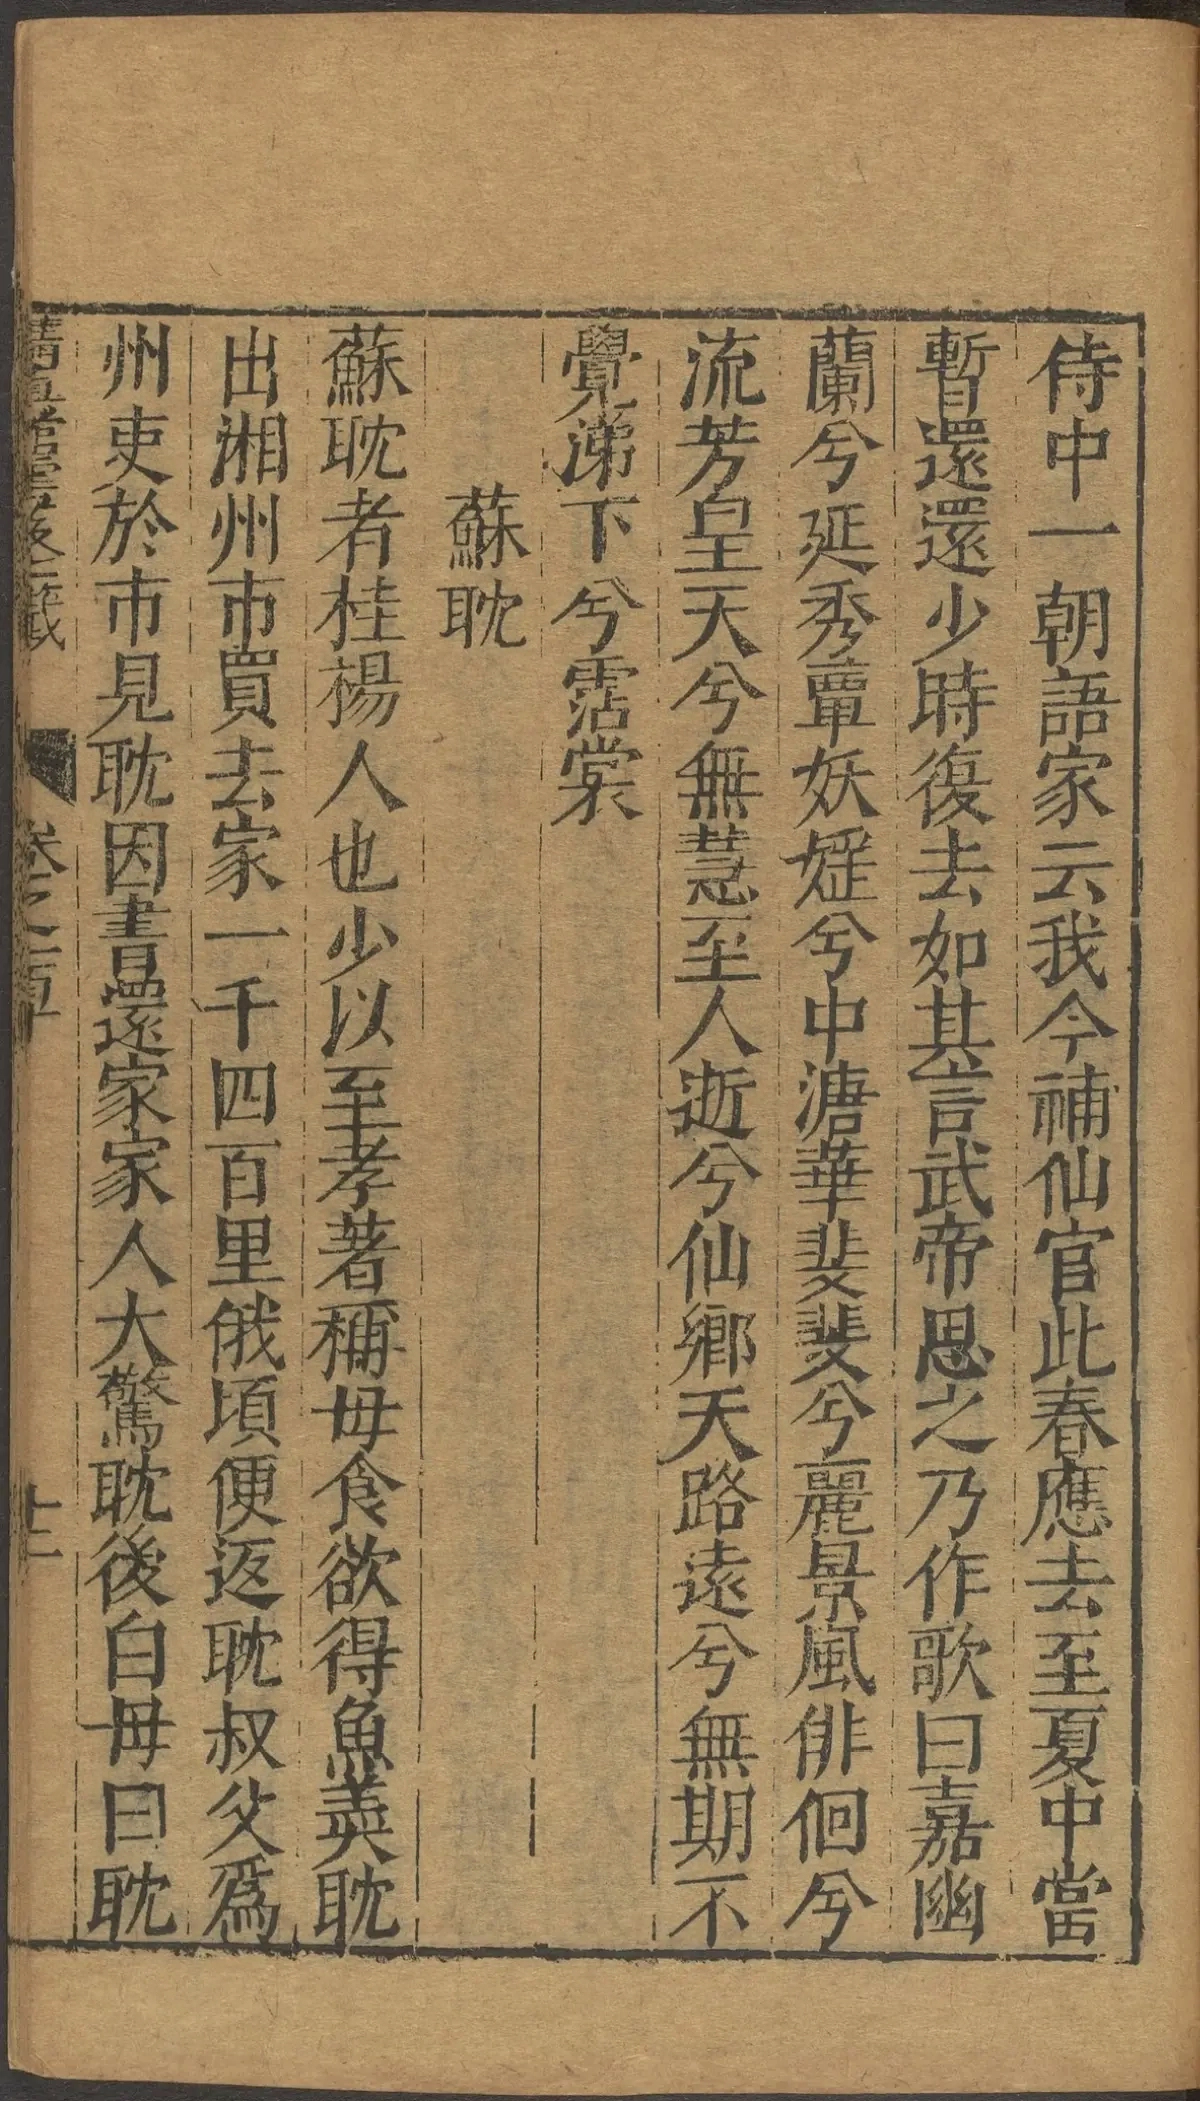 侍中一朝語家云我今補仙官此春應去至夏中當
暫還還少時復去如其言武帝思之乃作歌曰嘉幽
蘭兮延秀蕈妖婬兮中溏華斐斐兮麗景風徘徊兮
流芳皇天兮無慧至人逝兮仙鄉天路遠兮無期不
覺涕下兮霑裳
蘇耽
蘇耽者桂楊人也少以至孝著稱母食欲得魚羹耽
出湘州市買去家一千四百里俄頃便返耽叔父爲
州吏於市見耽因書還家家人大驚耽後白母曰耽
卷之五
十二